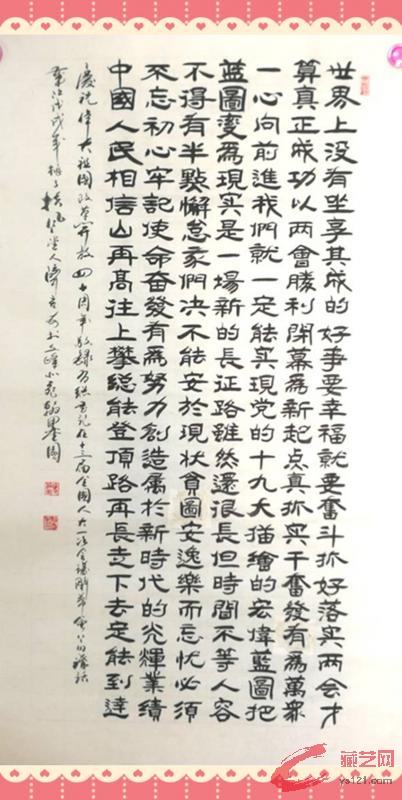 世界上没有坐享其成的好事要幸福就要奮斗抓好落实两会才
算真正成功以两會勝利閉幕為新起点真抓实干奮發有為萬眾
一心向前進我們就一定能实現党的十九大描繪的宏偉藍圖把
藍圖变為現实是一場新的長征路雖然還很長但時間不等人容
不得有半點懈怠家們决不能安於現状貪圖安逸樂而忘忧必須
不忘初心牢記使命奮發有為努力創造屬於新時代的光輝業績
中國人民相信山再高往上攀總能登頂路再長走下去定能到達
慶祝偉大祖國改革開放四十周年敬録習總書記在十三届全國人大一次會議閉幕會上的講話
戊戌年
藏艺网
ys121.com